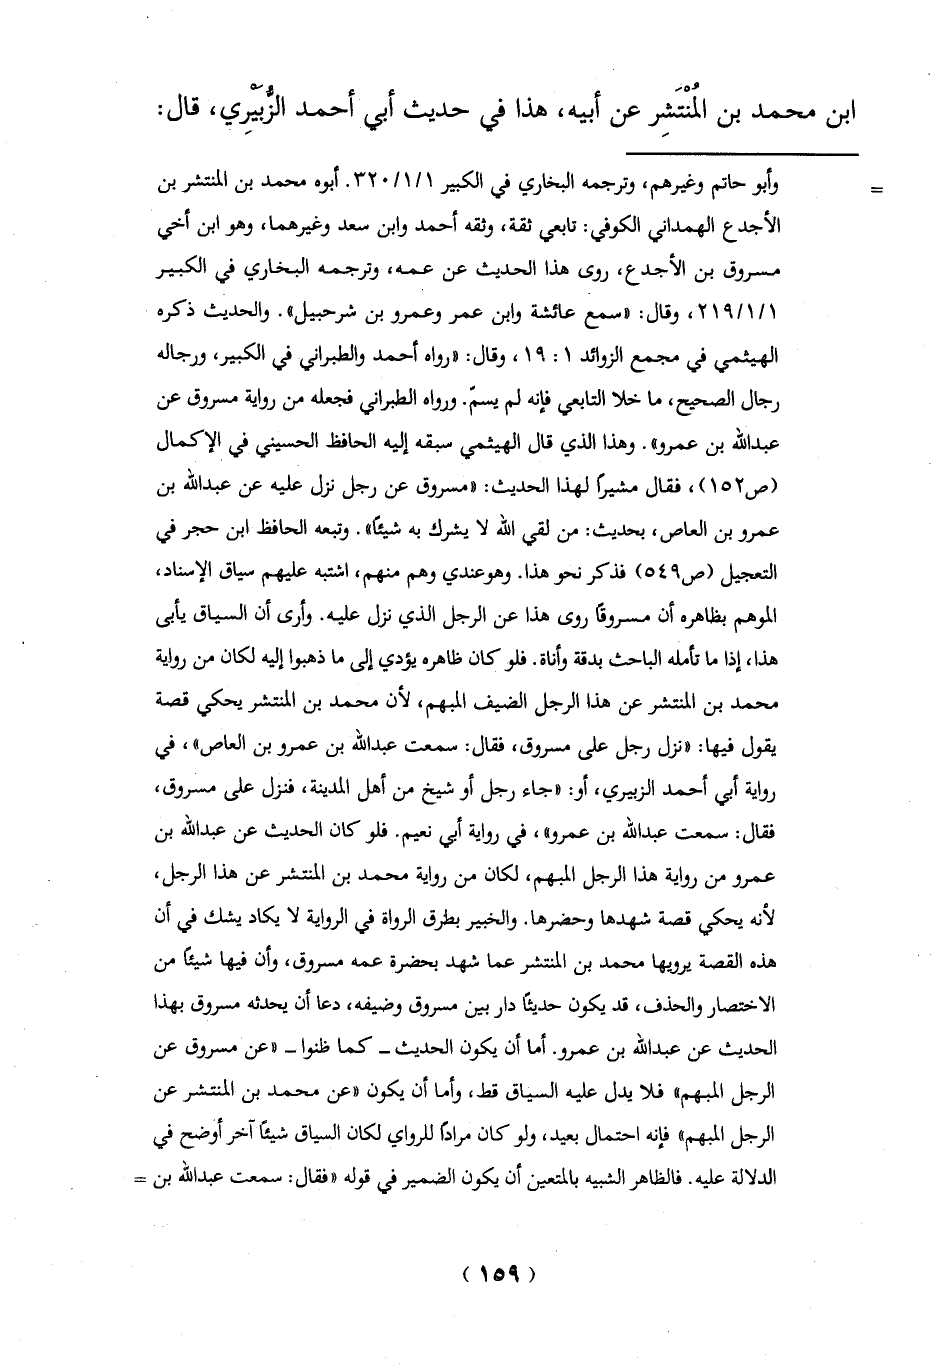 ابن محمد بن المُنْتَشِر عن أبيه، هذا في حديث أبي أحمد الزُّبَيْرِي، قال:
= وأبو حاتم وغيرهم، وترجمه البخاري في الكبير ٣٢٠/١/١. أبوه محمد بن المنتشر بن
الأجدع الهمداني الكوفي: تابعي ثقة، وثقه أحمد وابن سعد وغيرهما، وهو ابن أخي
مسروق بن الأجدع، روى هذا الحديث عن عمه، وترجمه البخاري في الكبير
٢١٩/١/١، وقال: «سمع عائشة وابن عمر وعمرو بن شرحبيل». والحديث ذكره
الهيثمي في مجمع الزوائد ١: ١٩، وقال: «رواه أحمد والطبراني في الكبير، ورجاله
رجال الصحيح، ما خلا التابعي فإنه لم يسمّ. ورواه الطبراني فجعله من رواية مسروق عن
عبدالله بن عمرو». وهذا الذي قال الهيثمي سبقه إليه الحافظ الحسيني في الإكمال
(ص١٥٢)، فقال مشيراً لهذا الحديث: «مسروق عن رجل نزل عليه عن عبدالله بن
عمرو بن العاص، بحديث: من لقي الله لا يشرك به شيئاً». وتبعه الحافظ ابن حجر في
التعجيل (ص٥٤٩) فذكر نحو هذا. وهوعندي وهم منهم، اشتبه عليهم سياق الإسناد،
الموهم بظاهره أن مسروقاً روى هذا عن الرجل الذي نزل عليه. وأرى أن السياق يأبى
هذا، إذا ما تأمله الباحث بدقة وأناة. فلو كان ظاهره يؤدي إلى ما ذهبوا إليه لكان من رواية
محمد بن المنتشر عن هذا الرجل الضيف المبهم، لأن محمد بن المنتشر يحكي قصة
يقول فيها: «نزل رجل على مسروق، فقال: سمعت عبدالله بن عمرو بن العاص»، في
رواية أبي أحمد الزبيري، أو: «جاء رجل أو شيخ من أهل المدينة، فنزل على مسروق،
فقال: سمعت عبدالله بن عمرو»، في رواية أبي نعيم. فلو كان الحديث عن عبدالله بن
عمرو من رواية هذا الرجل المبهم، لكان من رواية محمد بن المنتشر عن هذا الرجل،
لأنه يحكي قصة شهدها وحضرها. والخبير بطرق الرواة في الرواية لا يكاد يشك في أن
هذه القصة يرويها محمد بن المنتشر عما شهد بحضرة عمه مسروق، وأن فيها شيئاً من
الاختصار والحذف، قد يكون حديثاً دار بين مسروق وضيفه، دعا أن يحدثه مسروق بهذا
الحديث عن عبدالله بن عمرو. أما أن يكون الحديث ــ كما ظنوا ــ «عن مسروق عن
الرجل المبهم» فلا يدل عليه السياق قط، وأما أن يكون «عن محمد بن المنتشر عن
الرجل المبهم» فإنه احتمال بعيد، ولو كان مراداً للرواي لكان السياق شيئاً آخر أوضح في
الدلالة عليه. فالظاهر الشبيه بالمتعين أن يكون الضمير في قوله «فقال: سمعت عبدالله بن =
(١٥٩)